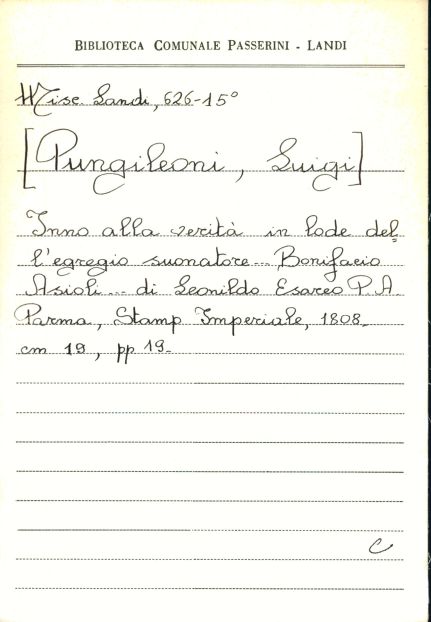 BIBLIOTECA COMUNALE PASSERINI - LANDI
Misc. Landi, 626-15°
[Pungileoni, Luigi]
Inno alla verità in lode del
l'egregio suonatore... Bonifacio
Asioli... di Leonildo Esareo P.A.
Parma, Stamp Imperiale, 1808.
cm 19, pp 19.
C